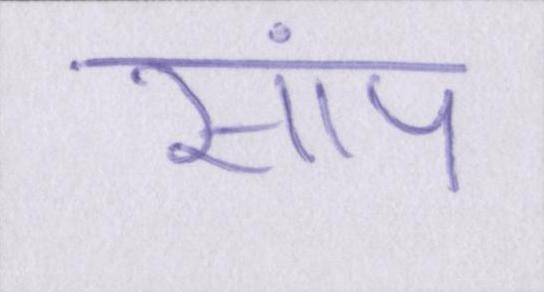 सांप